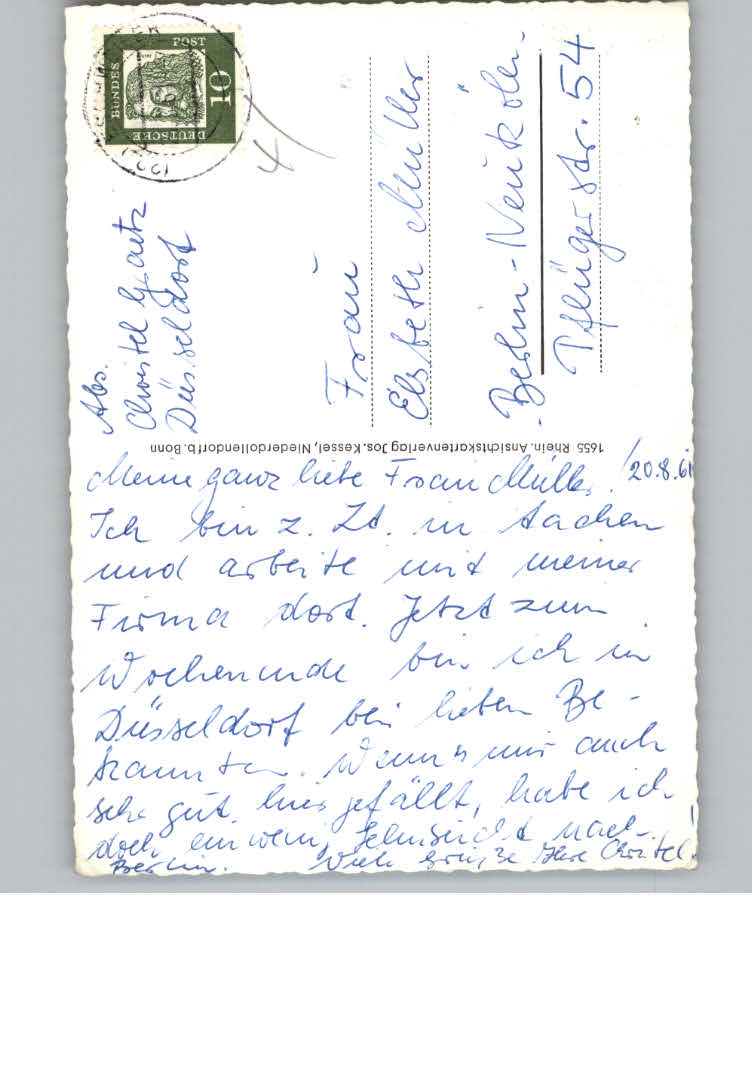 DEUTSCHE
BUNDES
POST
10
Abs.
Christel Goetz
Düsseldorf
Frau
Elsbeth Müller
Berlin-Neukölln
Pflügerstr. 54
1655 Rhein. Ansichtskartenverlag Jos. Kessel, Niederdollendorf b. Bonn
20.8.61
Meine ganz liebe Frau Müller!
Ich bin z. Zt. in Aachen
und arbeite mit meiner
Firma dort. Jetzt zum
Wochenende bin ich in
Düsseldorf bei lieben Be-
kannten. Wenn's mir auch
sehr gut hier gefällt, habe ich
doch ein wenig Sehnsucht nach
Berlin. Viele Grüße Ihre Christel!